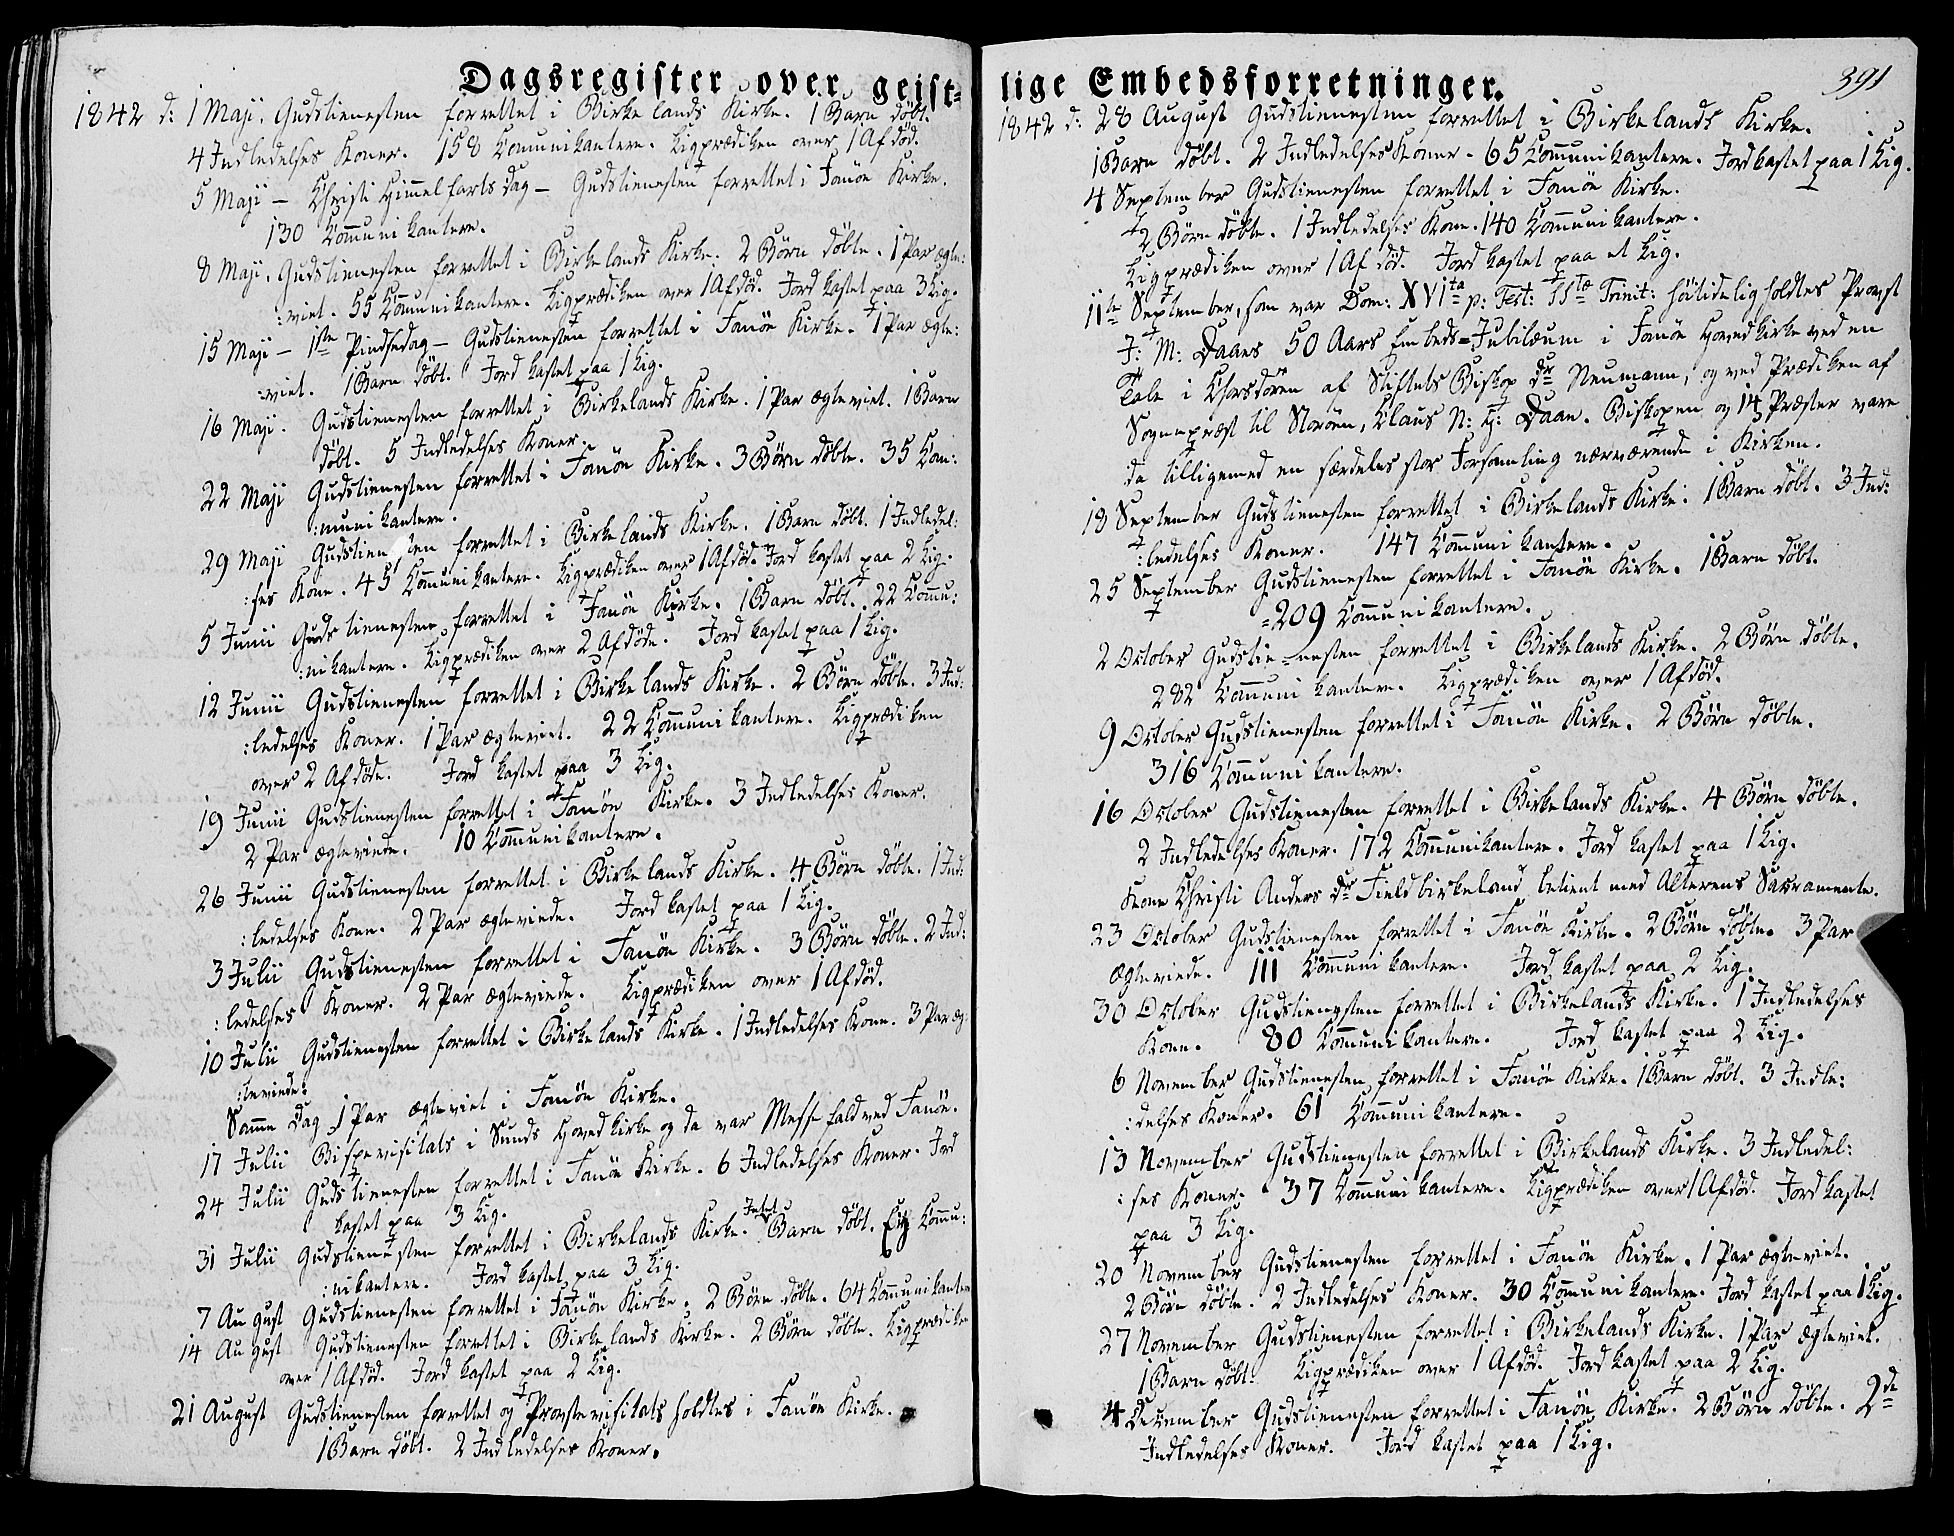 Dagsregister over geist-
1842 d: 1 Maji. Gudstienesten forrettet i Birkelands Kirke. 1 Barn døbt.
4 Indledelses Koner. 158 Communikantere. Ligprædiken over 1 Afdød.
5 Maji – Christi Himmelfarts Dag – Gudstienesten forrettet i Fanöe Kirke.
130 Communikantere.
8 Maji. Gudstienesten forrettet i Birkelands Kirke. 2 Børn døbte. 1 Par ægte:
:viet. 55 Communikantere. Ligprædiken over 1 Afdød. Jord kastet paa 3 Lig.
15 Maji – 1ste Pindsedag – Gudstienesten forrettet i Fanöe Kirke. 1 Par ægte:
:viet. 1 Barn døbt. Jord kastet paa 1 Lig.
16 Maji. Gudstienesten forrettet i Birkelands Kirke. 1 Par ægteviet. 1 Barn
døbt. 5 Indledelses Koner.
22 Maji Gudstienesten forrettet i Fanöe Kirke. 3 Børn døbte. 35 Com:
:munikantere.
29 Maji Gudstienesten forrettet i Birkelands Kirke. 1 Barn døbt. 1 Indledel:
:ses Kone. 45 Communikantere. Ligprædiken over 1 Afdød. Jord kastet paa 2 Lig.
5 Junii Gudstienesten forrettet i Fanöe Kirke. 1 Barn døbt. 22 Commu:
:nikantere. Ligprædiken over 2 Afdøde. Jord kastet paa 1 Lig.
12 Junii Gudstienesten forrettet i Birkelands Kirke. 2 Børn døbte. 3 Ind:
:ledelses Koner. 1 Par ægteviet. 22 Communikantere. Ligprædiken
over 2 Afdøde. Jord kastet paa 3 Lig.
19 Junii Gudstienesten forrettet i Fanöe Kirke. 3 Indledelses Koner.
2 Par ægteviede. 10 Communikantere.
26 Junii Gudstienesten forrettet i Birkelands Kirke. 4 Børn døbte. 1 Ind:
:ledelses Kone. 2 Par ægteviede. Jord kastet paa 1 Lig.
3 Julii Gudstienesten forrettet i Fanöe Kirke. 3 Børn døbte. 2 Ind:
:ledelses Koner. 2 Par ægteviede. Ligprædiken over 1 Afdød.
10 Julii Gudstienesten forrettet i Birkelands Kirke. 1 Indledelses Kone. 3 Par æg:
:teviede.
Samme Dag 1 Par ægteviet i Fanöe Kirke.
17 Julii Bispevisitats i Sunds Hovedkirke og da var Messefald ved Fanöe.
24 Julii Gudstienesten forrettet i Fanöe Kirke. 6 Indledelses Koner. Jord
kastet paa 3 Lig.
31 Julii Gudstienesten forrettet i Birkelands Kirke. Intet Barn døbt. Ej Commu:
:nikantere. Jord kastet paa 3 Lig.
7 August Gudstienesten forrettet i Fanöe Kirke. 2 Børn døbte. 64 Communikantere
14 August Gudstienesten forrettet i Birkelands Kirke. 2 Børn døbte. Ligprædiken
over 1 Afdød. Jord kastet paa 2 Lig.
21 August Gudstienesten forrettet og Provstevisitats holdtes i Fanöe Kirke.
1 Barn døbt. 2 Indledelses Koner.
lige Embedsforretninger.
391
1842 d: 28 August Gudstienesten forrettet i Birkelands Kirke.
1 Barn døbt. 2 Indledelses Koner. 65 Communikantere. Jord kastet paa 1 Lig.
4 September Gudstienesten forrettet i Fanöe Kirke.
2 Børn døbte. 1 Indledelses Kone. 140 Communikantere.
Ligprædiken over 1 Afdød. Jord kastet paa et Lig.
11te September, som var Dom: XVIta p: Fest: SStæ Trinit: höitideligholdtes Provst
J: M: Daaes 50 Aars Embeds=Jubilæum i Fanöe Hovedkirke ved en
Tale i Chorsdören af Stiftets Biskop Dr Neumann, og ved Prædiken af
Sognepræst til Storöen, Claus N: H: Daae. Biskopen og 14 Præster vare
da tilligemed en særdeles stor Forsamling nærværende i Kirken.
18 September Gudstienesten forrettet i Birkelands Kirke. 1 Barn døbt. 3 Ind:
:ledelses Koner. 147 Communikantere.
25 September Gudstienesten forrettet i Fanöe Kirke. 1 Barn døbt.
=209 Communikantere.
2 October Gudstie=nesten forrettet i Birkelands Kirke. 2 Børn døbte.
282 Communikantere. Ligprædiken over 1 Afdød.
9 October Gudstienesten forrettet i Fanöe Kirke. 2 Børn døbte.
316 Communikantere.
16 October Gudstienesten forrettet i Birkelands Kirke. 4 Børn døbte.
2 Indledelses Koner. 172 Communikantere. Jord kastet paa 1 Lig.
Kone Christi Anders Dr Fieldbirkeland betient med Alterens Sacramente.
23 October Gudstienesten forrettet i Fanöe Kirke. 2 Børn døbte. 3 Par
ægteviede. 111 Communikantere. Jord kastet paa 2 Lig.
30 October Gudstienesten forrettet i Birkelands Kirke. 1 Indledelses
Kone. 80 Communikantere. Jord kastet paa 2 Lig.
6 November Gudstienesten forrettet i Fanöe Kirke. 1 Barn døbt. 3 Indle:
:delses Koner. 61 Communikantere.
13 November Gudstienesten forrettet i Birkelands Kirke. 3 Indledel:
:ses Koner. 37 Communikantere. Ligprædiken over 1 Afdød. Jord kastet
paa 3 Lig.
20 November Gudstienesten forrettet i Fanöe Kirke. 1 Par ægteviet.
2 Børn døbte. 2 Indledelses Koner. 30 Communikantere. Jord kastet paa 1 Lig.
27 November Gudstienesten forrettet i Birkelands Kirke. 1 Par ægteviet.
1 Barn døbt. Ligprædiken over 1 Afdød. Jord kastet paa 2 Lig.
4 December Gudstienesten forrettet i Fanöe Kirke. 2 Børn døbte. 2de
Indledelses Koner. Jord kastet paa 1 Lig.